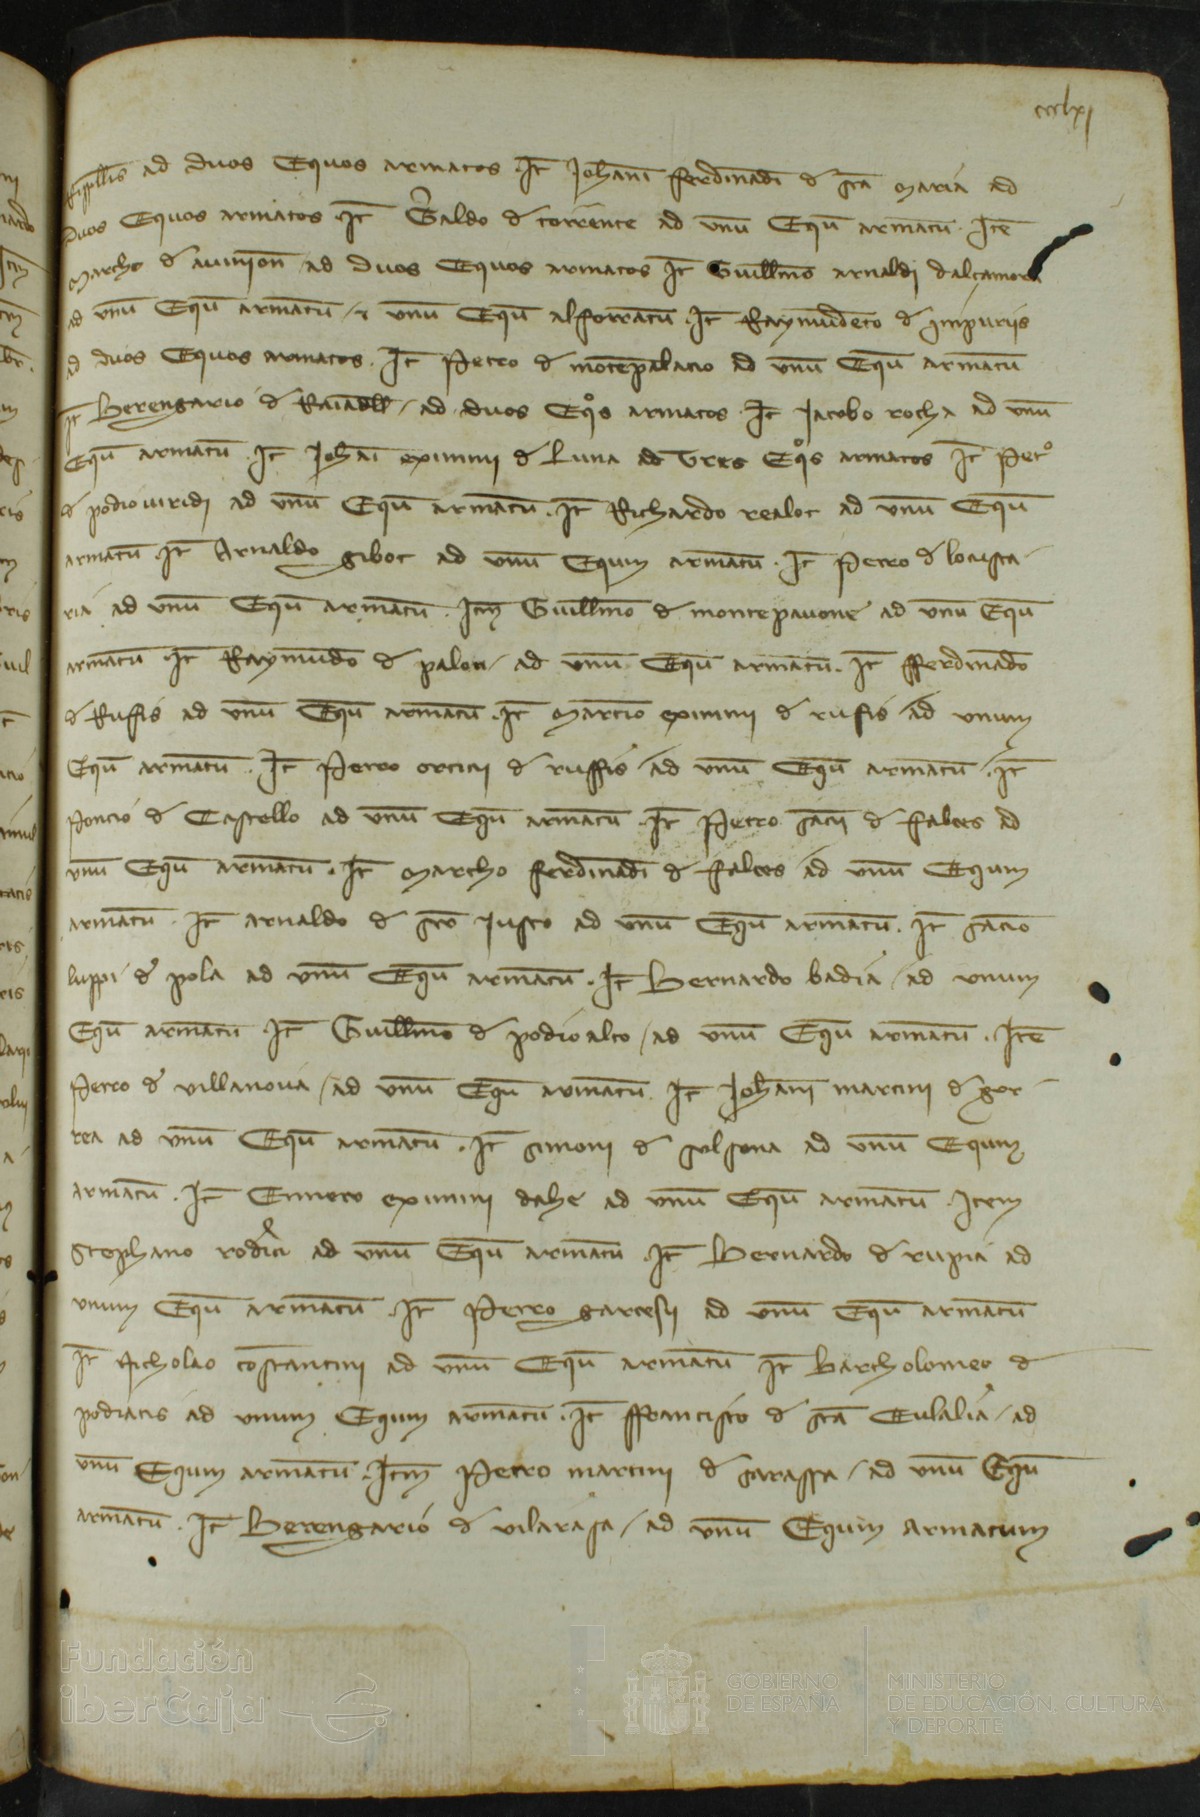 ccclxj
ad duos Equos armatos . Jt Johani ferdinadi d sca maria ad
Duos Equos armatos . Jt Galdo d torrente ad vnu Equ armatu . Jte
Marcho d auinion ad duos Equos armatos Jt Guillmo arnaldi dalcamora
ad vnu Equ armatu / & vnu Equ alforratu . Jt Raymudeto d impurijs
ad duos Equos armatos . Jt Petro d motepalacio ad vnu Equ armatu
Jt Berengario d Raiadell / ad duos Eqos armatos . Jt Jacobo rocha ad vnu
Equ armatu . Jt Johai eximini d Luna ad tres Eqos armatos Jt Peto
d podiouiridi ad vnu Equ armatu . Jt Richardo realoc ad vnu Equ
armatu . Jt Arnaldo giboc ad vnu Equm armatu . Jt Petro d locusta
ria ad vnu Equ armatu . Jtm Guillmo d montepauone ad vnu Equ
armatu . Jt Raymudo d palou / ad vnu Equ armatu . Jt fferdinado
d Ruffis ad vnu Equ armatu . Jt Martio eximini d rufis / ad vnum
Equ armatu . Jt Petro orticii d ruffis / ad vnu Equ armatu . Jt
Poncio d Castello ad vnu Equ armatu . Jt Petro sacii d falces ad
vnu Equ armatu . Jt Marcho ferdinadi d falces ad vnu Equm
armatu . Jt arnaldo d sco Justo ad vnu Equ armatu . Jt sacio
luppi d pola ad vnu Equ armatu . Jt Bernardo badia / ad vnum
Equ armatu . Jt Guillmo d podioalto / ad vnu Equ armatu . Jte
Petro d villanoua / ad vnu Equ armatu . Jt Johani martini d gor
rea ad vnu Equ armatu . Jt simoni d sulsona ad vnu Equm
armatu . Jt Enneco eximini dahe ad vnu Equ armatu . Jtem
Stephano rodici ad vnu Equ armatu . Jt Bernardo d rupia ad
vnum Equ armatu . Jt Petro garcesii ad vnu Equ armatu
Jt Nicholao costantini ad vnu Equ armatu Jt Bartholomeo d
podiatis ad vnum Equm armatu . Jt ffrancisco d sca Eulalia / ad
vnu Equm armatu . Jtm Petro martini d sarassa / ad vnu Equ
armatu . Jt Berengario d vilarasa / ad vnu Equm Armatum
Fundación
iberCaja
GOBIERNO
DE ESPAÑA
MINISTERIO
DE EDUCACIÓN, CULTURA
Y DEPORTE